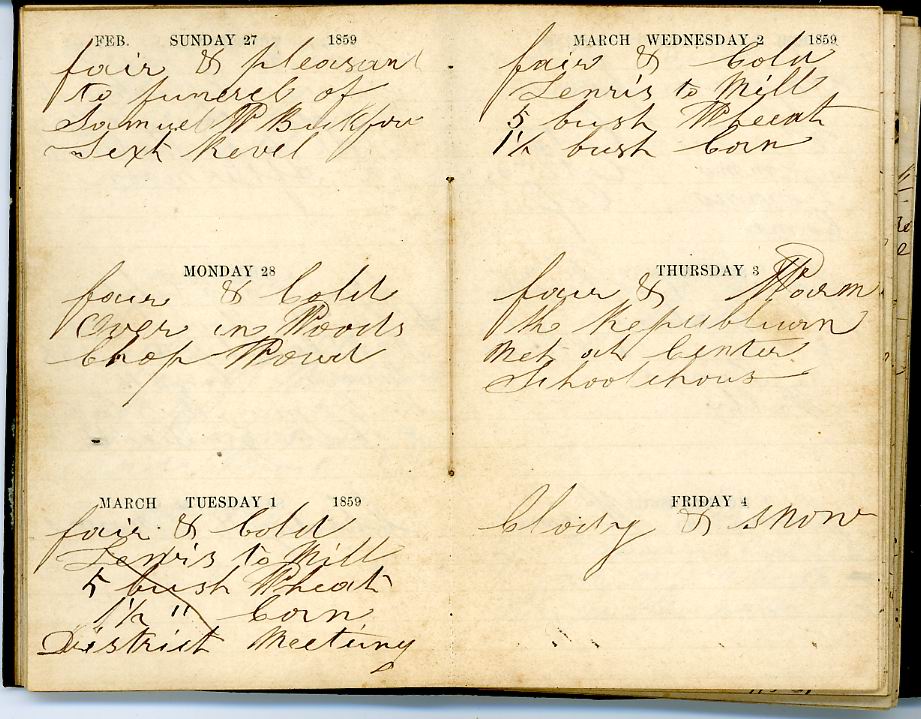 FEB. SUNDAY 27 1859
fair & pleasant
to funerel of
Samuel P Buckford
Text Revel
MONDAY 28
fair & Cold
Over in Woods
Chop Wood
MARCH TUESDAY 1 1859
fair & Cold
Lewis to Mill
5 bush Wheat
1 1/2 " Corn
District Meeting
MARCH WEDNESDAY 2 1859
fair & Cold
Lewis to Mill
5 bush Wheat
1 1/2 bush Corn
THURSDAY 3
fair & Warm
the Republican
Met at Center
Schoolehous
FRIDAY 4
Clody & snow